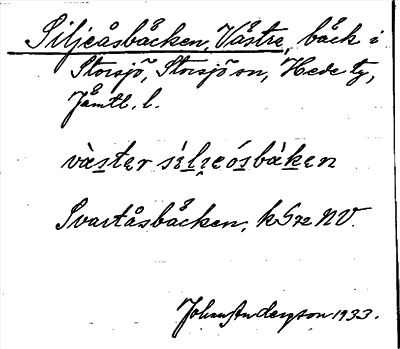 Siljeåsbäcken, Västre, bäck i
Storsjö, Storsjö sn, Hede tg,
Jämtl. l.
vàster sìljeósbàken
Svartåsbäcken, k 5 rz NV.
Johan Anderson 1933.